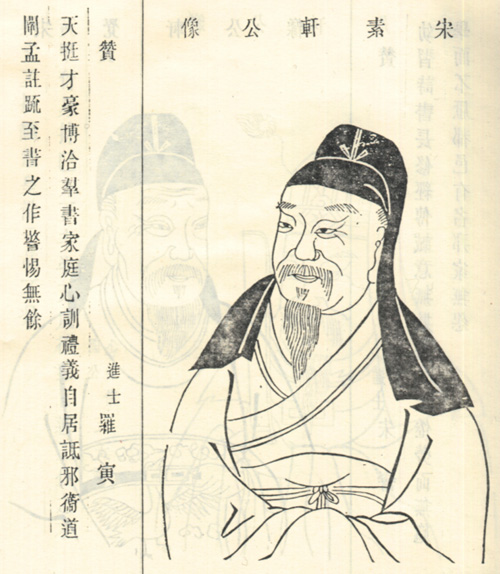 宋素軒公像
贊
進士羅寅
天挺才豪博洽羣書家庭心訓禮義自居詆邪衞道
闡孟註䟽至書之作警惕無餘